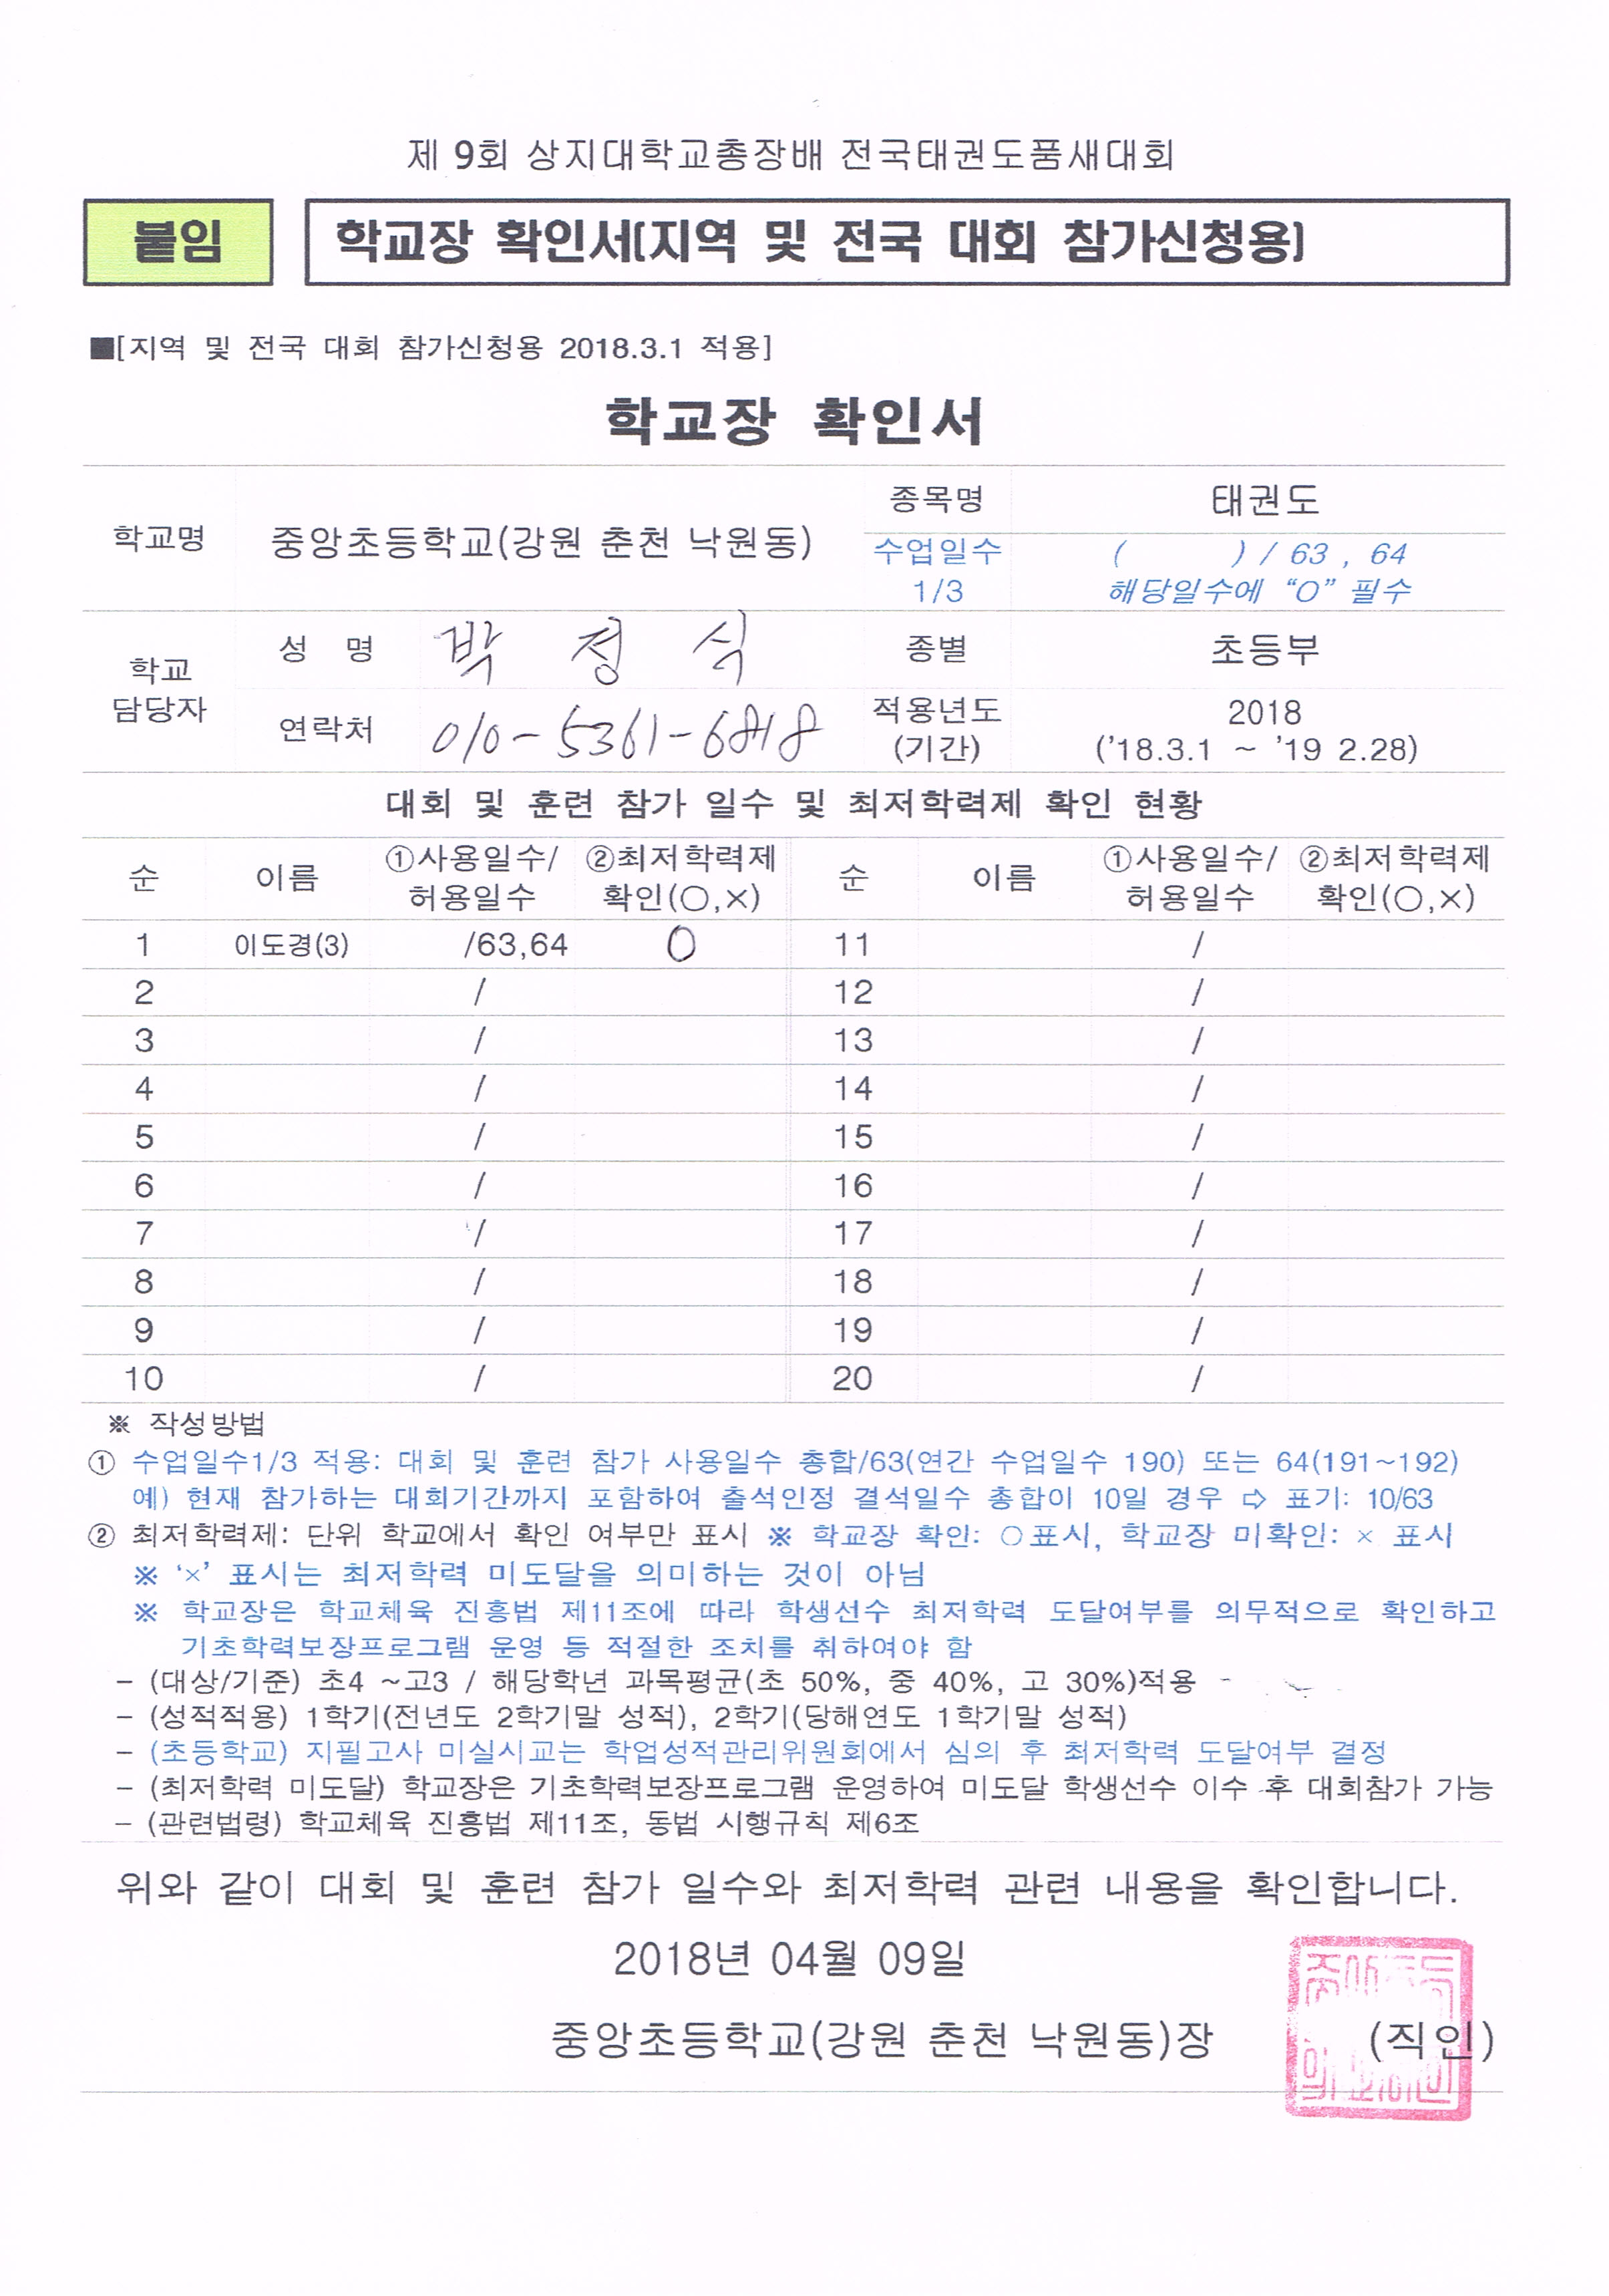 제 9회 상지대학교총장배 전국태권도품새대회
붙임
학교장 확인서(지역 및 전국 대회 참가신청용)
■[지역 및 전국 대회 참가신청용 2018.3.1 적용]
학교장 확인서
학교명 중앙초등학교(강원 춘천 낙원동) 종목명 태권도
수업일수 1/3 ( ) / 63 , 64
해당일수에 “O” 필수
학교 담당자 성 명 박 정 식 종별 초등부
연락처 010-5361-6818 적용년도 (기간) 2018
('18.3.1 ~ '19 2.28)
대회 및 훈련 참가 일수 및 최저학력제 확인 현황
순 이름 ①사용일수/허용일수 ②최저학력제 확인(○,×) 순 이름 ①사용일수/허용일수 ②최저학력제 확인(○,×)
1 이도경(3) /63,64 O 11 /
2 / 12 /
3 / 13 /
4 / 14 /
5 / 15 /
6 / 16 /
7 / 17 /
8 / 18 /
9 / 19 /
10 / 20 /
※ 작성방법
① 수업일수1/3 적용: 대회 및 훈련 참가 사용일수 총합/63(연간 수업일수 190) 또는 64(191~192)
예) 현재 참가하는 대회기간까지 포함하여 출석인정 결석일수 총합이 10일 경우 ⇨ 표기: 10/63
② 최저학력제: 단위 학교에서 확인 여부만 표시 ※ 학교장 확인: ○표시, 학교장 미확인: × 표시
※ ‘×’ 표시는 최저학력 미도달을 의미하는 것이 아님
※ 학교장은 학교체육 진흥법 제11조에 따라 학생선수 최저학력 도달여부를 의무적으로 확인하고
기초학력보장프로그램 운영 등 적절한 조치를 취하여야 함
- (대상/기준) 초4 ~고3 / 해당학년 과목평균(초 50%, 중 40%, 고 30%)적용
- (성적적용) 1학기(전년도 2학기말 성적), 2학기(당해연도 1학기말 성적)
- (초등학교) 지필고사 미실시교는 학업성적관리위원회에서 심의 후 최저학력 도달여부 결정
- (최저학력 미도달) 학교장은 기초학력보장프로그램 운영하여 미도달 학생선수 이수 후 대회참가 가능
- (관련법령) 학교체육 진흥법 제11조, 동법 시행규칙 제6조
위와 같이 대회 및 훈련 참가 일수와 최저학력 관련 내용을 확인합니다.
2018년 04월 09일
중앙초등학교(강원 춘천 낙원동)장 (직인)